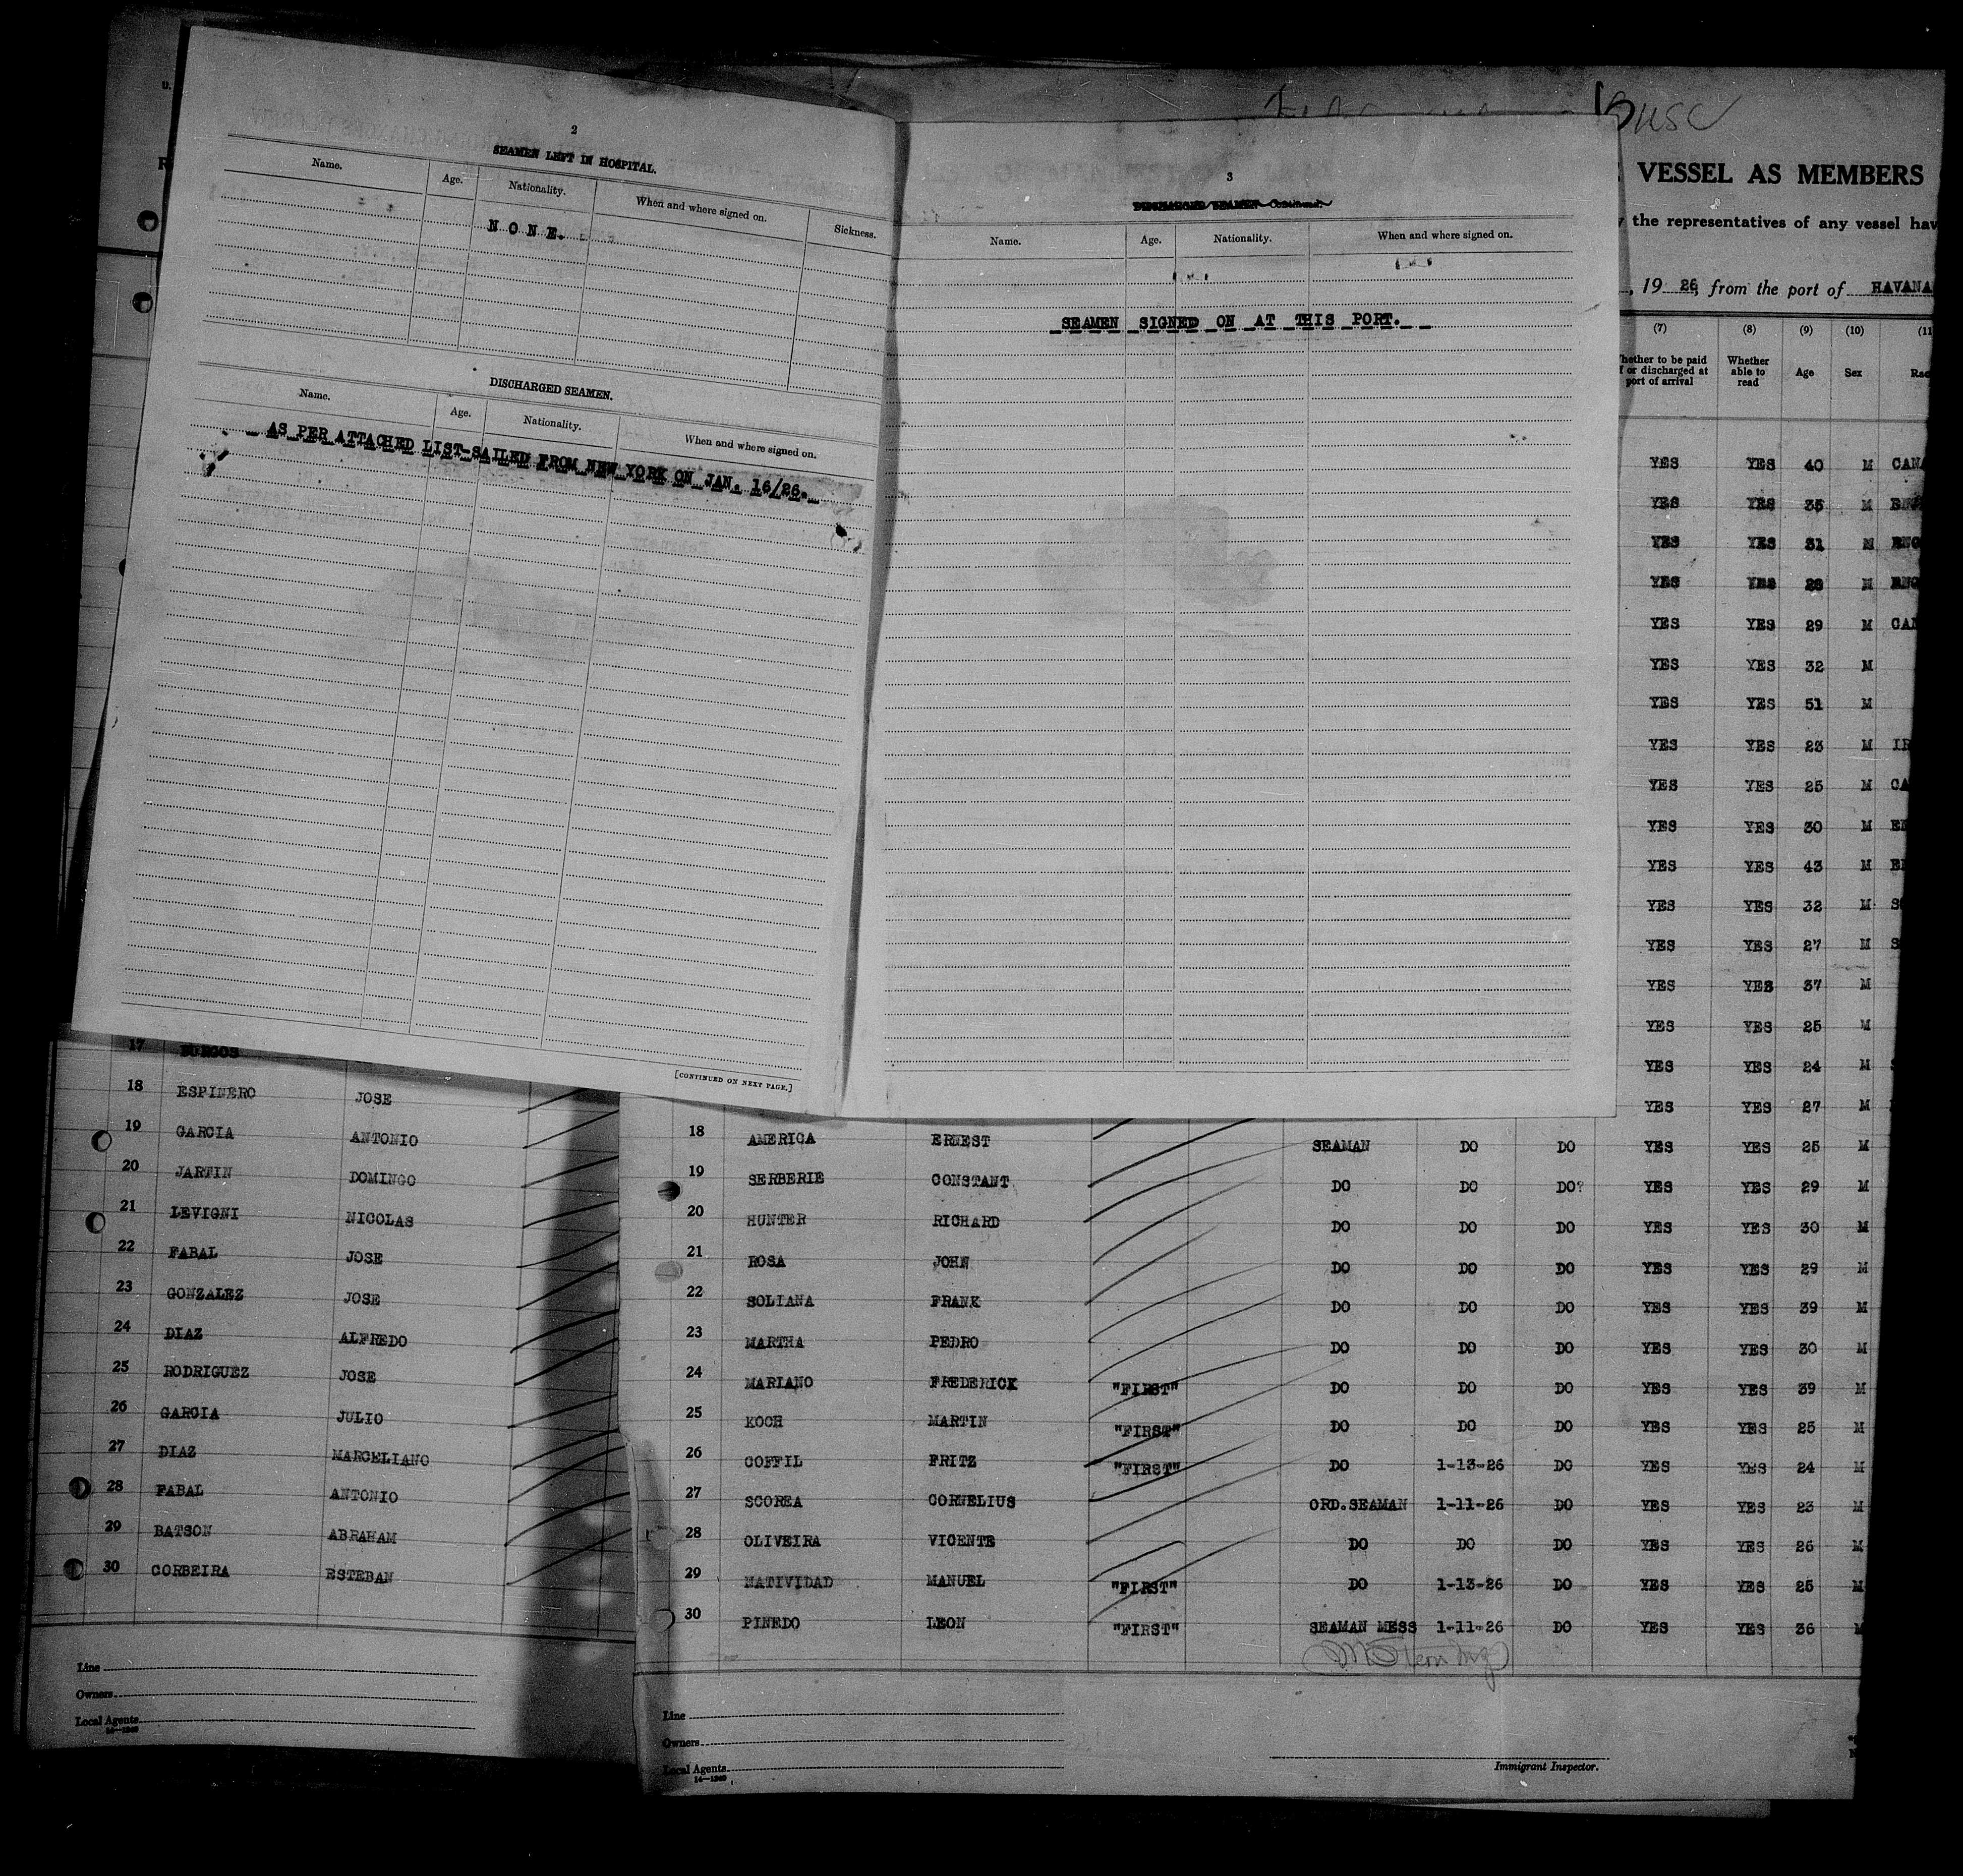 2
SEAMEN LEFT IN HOSPITAL.
Name. Age. Nationality. When and where signed on. Sickness.
NONE.
DISCHARGED SEAMEN.
Name. Age. Nationality. When and where signed on.
AS PER ATTACHED LIST-SAILED FROM NEW YORK ON JAN. 16/26.
[CONTINUED ON NEXT PAGE.]
3
DISCHARGED SEAMEN—Continued.
Name. Age. Nationality. When and where signed on.
SEAMEN SIGNED ON AT THIS PORT.
VESSEL AS MEMBERS
the representatives of any vessel
, 19 26, from the port of HAVANA
(7) (8) (9) (10)
Whether to be paid off or discharged at port of arrival
Whether able to read
Age
Sex
YES YES 40 M
YES YES 35 M
YES YES 31 M
YES YES 28 M
YES YES 29 M
YES YES 32 M
YES YES 51 M
YES YES 23 M
YES YES 25 M
YES YES 30 M
YES YES 43 M
YES YES 32 M
YES YES 27 M
YES YES 37 M
YES YES 25 M
YES YES 24 M
YES YES 27 M
17 BURGOS
18 ESPINERO JOSE
19 GARCIA ANTONIO
20 JARTIN DOMINGO
21 LEVIGNI NICOLAS
22 FABAL JOSE
23 GONZALEZ JOSE
24 DIAZ ALFREDO
25 RODRIGUEZ JOSE
26 GARCIA JULIO
27 DIAZ MARCELIANO
28 FABAL ANTONIO
29 BATSON ABRAHAM
30 CORBEIRA ESTEBAN
Line
Owners
Local Agents
18 AMERICA ERNEST SEAMAN DO DO YES YES 25 M
19 SERBERIE CONSTANT DO DO DO? YES YES 29 M
20 HUNTER RICHARD DO DO DO YES YES 30 M
21 ROSA JOHN DO DO DO YES YES 29 M
22 SOLIANA FRANK DO DO DO YES YES 39 M
23 MARTHA PEDRO DO DO DO YES YES 30 M
24 MARIANO FREDERICK "FIRST" DO DO DO YES YES 39 M
25 KOCH MARTIN "FIRST" DO DO DO YES YES 25 M
26 COFFIL FRITZ "FIRST" DO 1-13-26 DO YES YES 24 M
27 SCOREA CORNELIUS ORD.SEAMAN 1-11-26 DO YES YES 23 M
28 OLIVEIRA VICENTE DO DO DO YES YES 26 M
29 NATIVIDAD MANUEL "FIRST" DO 1-13-26 DO YES YES 25 M
30 PINEDO LEON "FIRST" SEAMAN MESS 1-11-26 DO YES YES 36
Line
Owners
Local Agents
Immigrant Inspector.